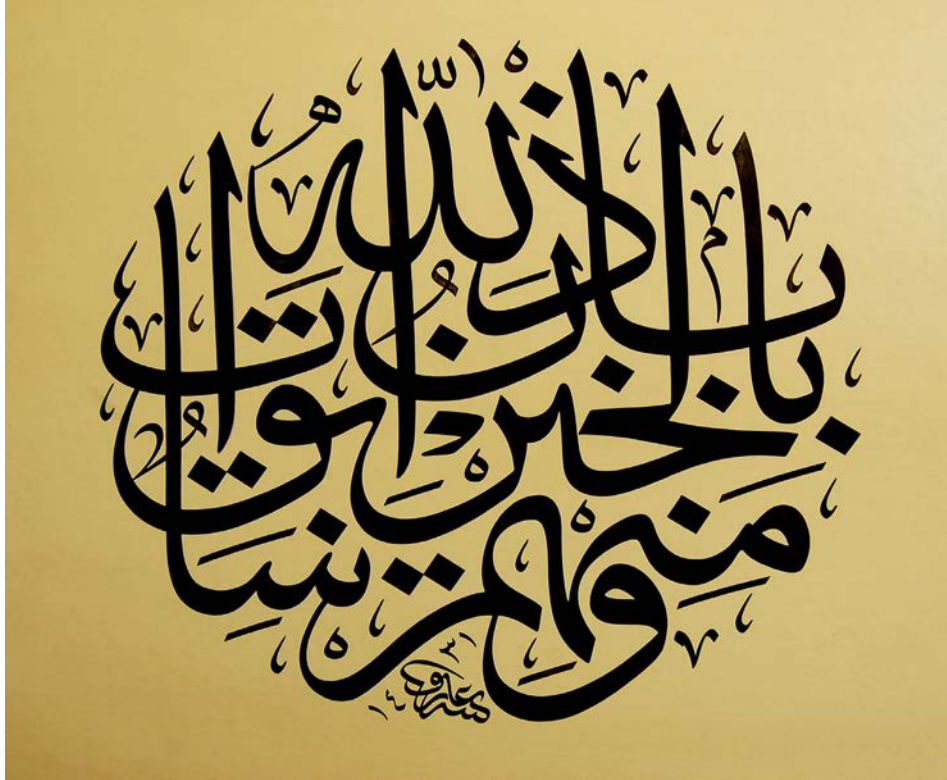 ومنهم سابق
بالخيرات
باذن الله